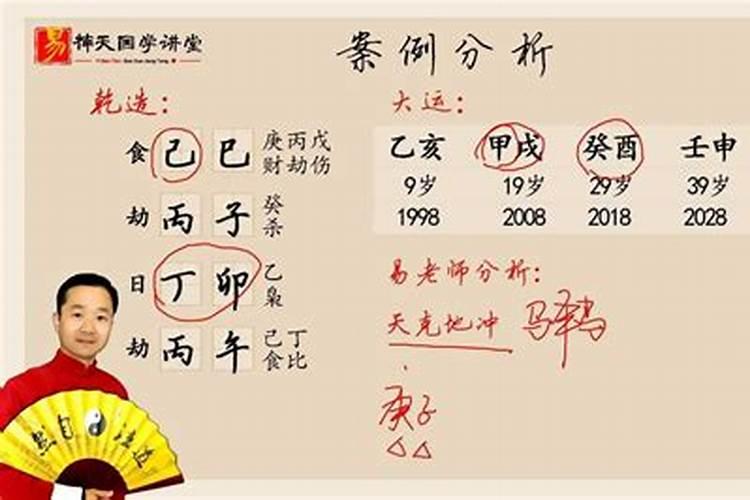 易 神天国学讲堂
案例分析
乾造：
食 己 巳 庚丙戊
财劫伤
劫 丙 子 癸
杀
日 丁 卯 乙
枭
劫 丙 午 己丁
食比
大运：
乙亥 甲戌 癸酉 壬申
9岁 19岁 29岁 39岁
1998 2008 2018 2028
易老师分析：
天克地冲
庚子
△△